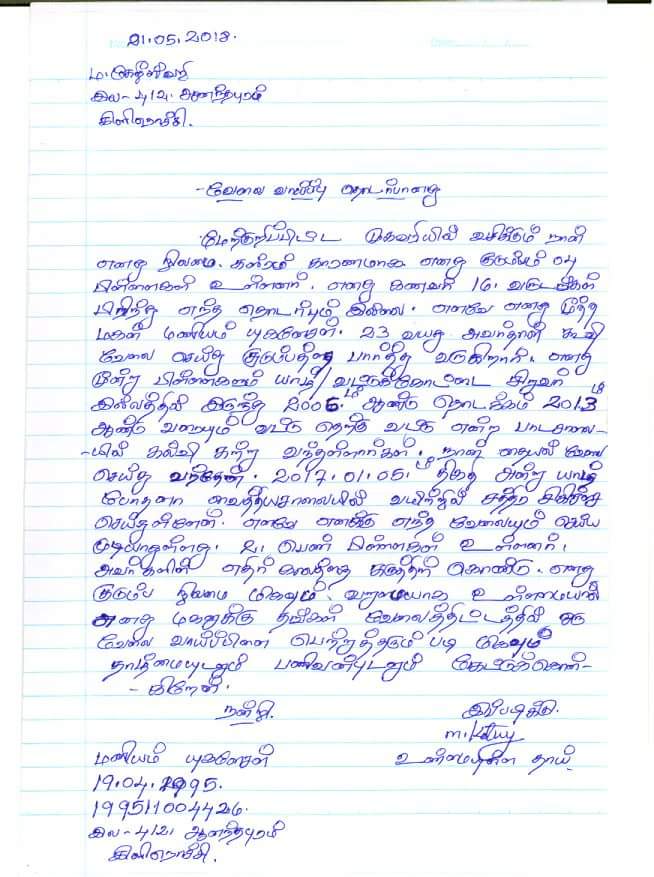 21.05.2018.
ம. கேதீஸ்வரி
இல - 412. ஆனந்தபுரம்
கிளிநொச்சி.
- வேலை வாய்ப்பு தொடர்பானது
மேற்குறிப்பிட்ட முகவரியில் வசிக்கும் நான்
எனது நிலமை. கஸ்ரம் காரணமாக எனது குடும்பம் 04
பிள்ளைகள் உள்ளனர். எனது கணவர் 16. வருடங்கள்
பிரிந்து எந்த தொடர்பும் இல்லை. எனவே எனது மூத்த
மகன் மணியம் யுகனேசன். 23 வயது அவர்தான் கூலி
வேலை செய்து குடும்பத்தை பார்த்து வருகிறார். எனது
மூன்று பிள்ளைகளும் யாழ்/ வட்டுக்கோட்டை சிறுவர்
இல்லத்தில் இருந்து 2006.ம் ஆண்டு தொடக்கம் 2013ம்
ஆண்டு வரையும் வட்டு தெற்கு வட்டு என்ற பாடசாலை-
-யில் கல்வி கற்று வந்துள்ளார்கள். நான் தையல் வேலை
செய்து வந்தேன். 2017.01.05.ம் திகதி அன்று யாழ்
போதனா வைத்தியசாலையில் வயிற்றில் சத்திர சிகிச்சை
செய்துள்ளேன். எனவே எனக்கு எந்த வேலையும் செய்ய
முடியாதுள்ளது. 2. பெண் பிள்ளைகள் உள்ளனர்.
அவர்களின் எதிர் காலத்தை கருத்தில் கொண்டு. எனது
குடும்ப நிலமை மிகவும். வறுமையாக உள்ளமையால்
எனது மகனுக்கு தங்கள் வேலைத்திட்டத்தில் ஒரு
வேலை வாய்ப்பினை பெற்றுத்தரும் படி மிகவும்
தாழ்மையுடனும் பணிவன்புடனும் கேட்டுக்கொள்-
- கிறேன்.
நன்றி. இப்படிக்கு.
உண்மையுள்ள தாய்.
மணியம் யுகனேசன்
19.04.1995.
199511004426.
இல - 412, ஆனந்தபுரம்
கிளிநொச்சி.